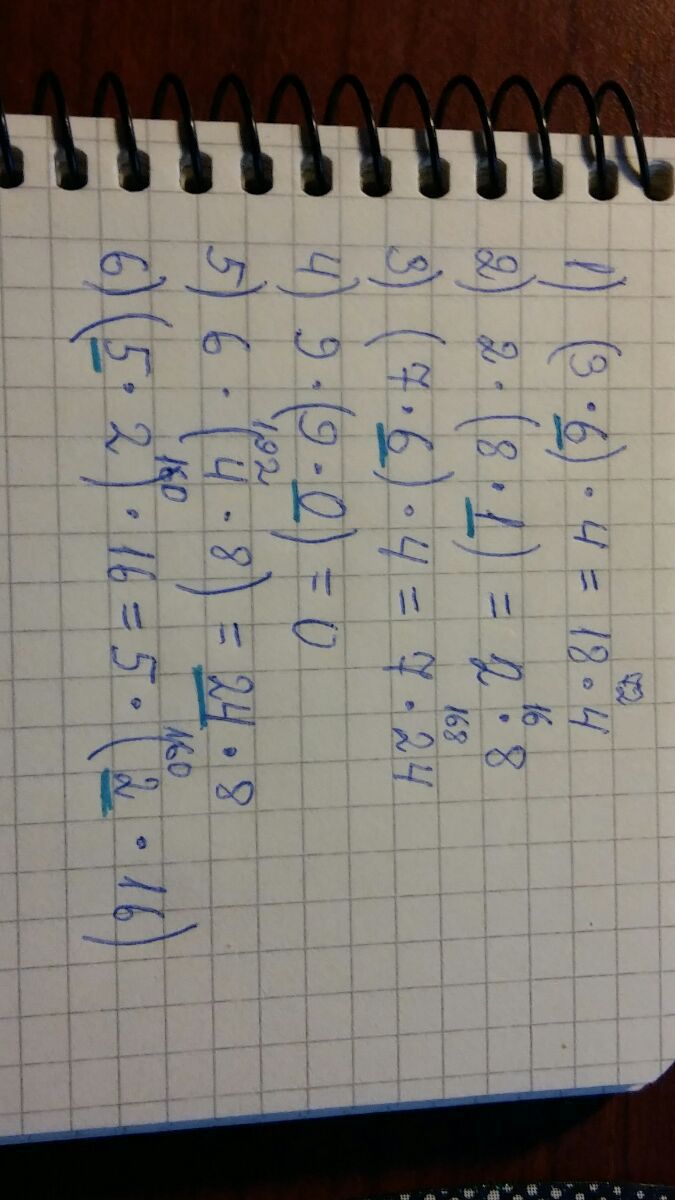 1) (3 · 6) · 4 = 18 · 4 72
2) 2 · (8 · 1) = 2 · 8 16
3) (7 · 6) · 4 = 7 · 24 168
4) 9 · (9 · 0) = 0
5) 6 · (4 · 8) = 24 · 8 192
6) (5 · 2) · 16 = 5 · (2 · 16) 160 160